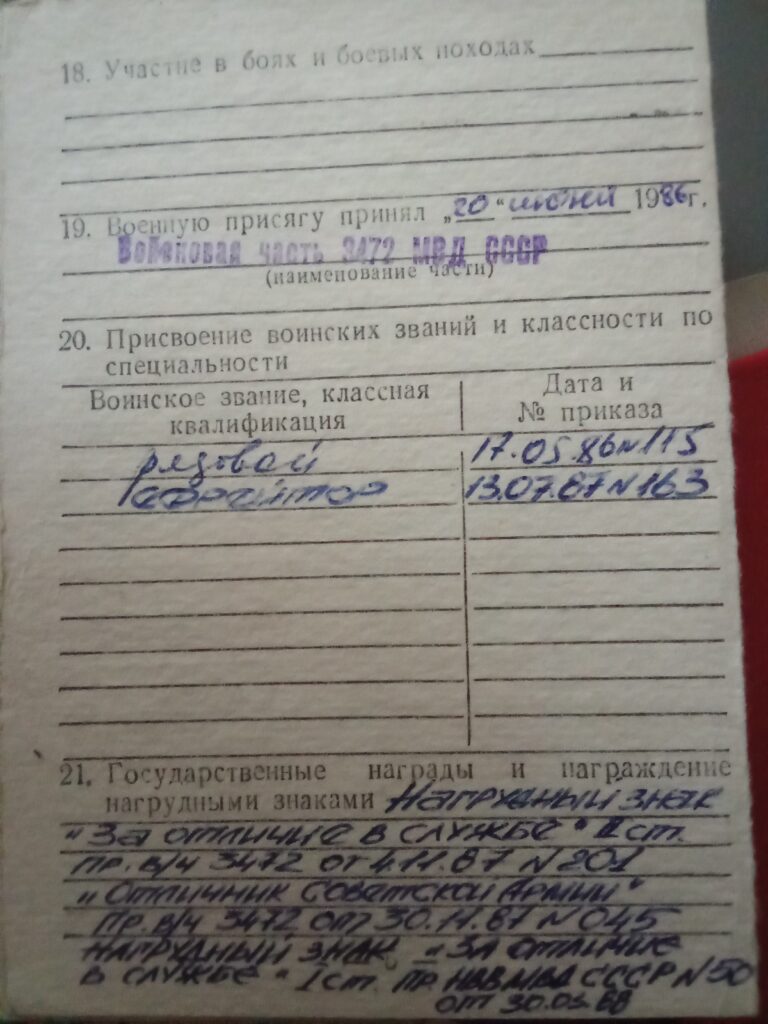 18. Участие в боях и боевых походах
19. Военную присягу принял „20“ июня 1986г.
Войсковая часть 3472 МВД СССР
(наименование части)
20. Присвоение воинских званий и классности по
специальности
Воинское звание, классная
квалификация
Дата и
№ приказа
рядовой 17.05.86 N 115
ефрейтор 13.07.87 N 163
21. Государственные награды и награждение
нагрудными знаками Нагрудный знак
"За отличие в службе" II ст.
Пр. в/ч 3472 от 4.11.87 N 201
"Отличник Советской Армии"
Пр. в/ч 3472 от 30.11.87 N 045
Нагрудный знак "За отличие
в службе" I ст. Пр. МВД СССР N 50
от 30.03.88